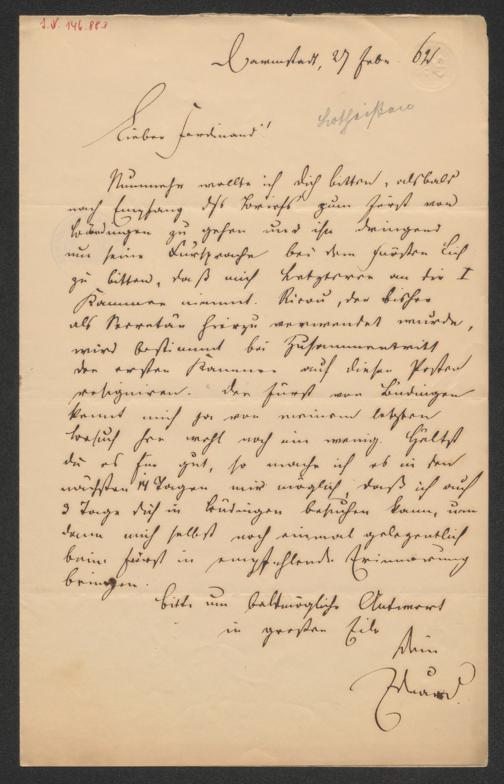 J.N. 146.883
Darmstadt, 27 Febr. 62
Lotheißen
Lieber Ferdinand!
Nunmehr wollte ich Dich bitten, alsbald
nach Empfang dß Briefs zum Fürst von
Büdingen zu gehen und ihn dringend
um seine Fürsprache bei dem Fürsten Lich
zu bitten, daß mich Letzterer an die I
Kammer nimmt. Ricou, der bisher
als Secretär hierzu verwendet wurde,
wird bestimmt bei Zusammentritt
der ersten Kammer auf diesen Posten
resigniren. Der Fürst von Büdingen
kennt mich ja von meinem letzten
Besuch her wohl noch ein wenig. Hältst
du es für gut, so mache ich es in den
nächsten 14 Tagen mir möglich, daß ich auf
3 Tage dich in Büdingen besuchen kann, um
dann mich selbst noch einmal gelegentlich
beim Fürst in empfehlende Erinnerung
bringen.
Bitte um baldmögliche Antwort
in großer Eile
Dein
Eduard.